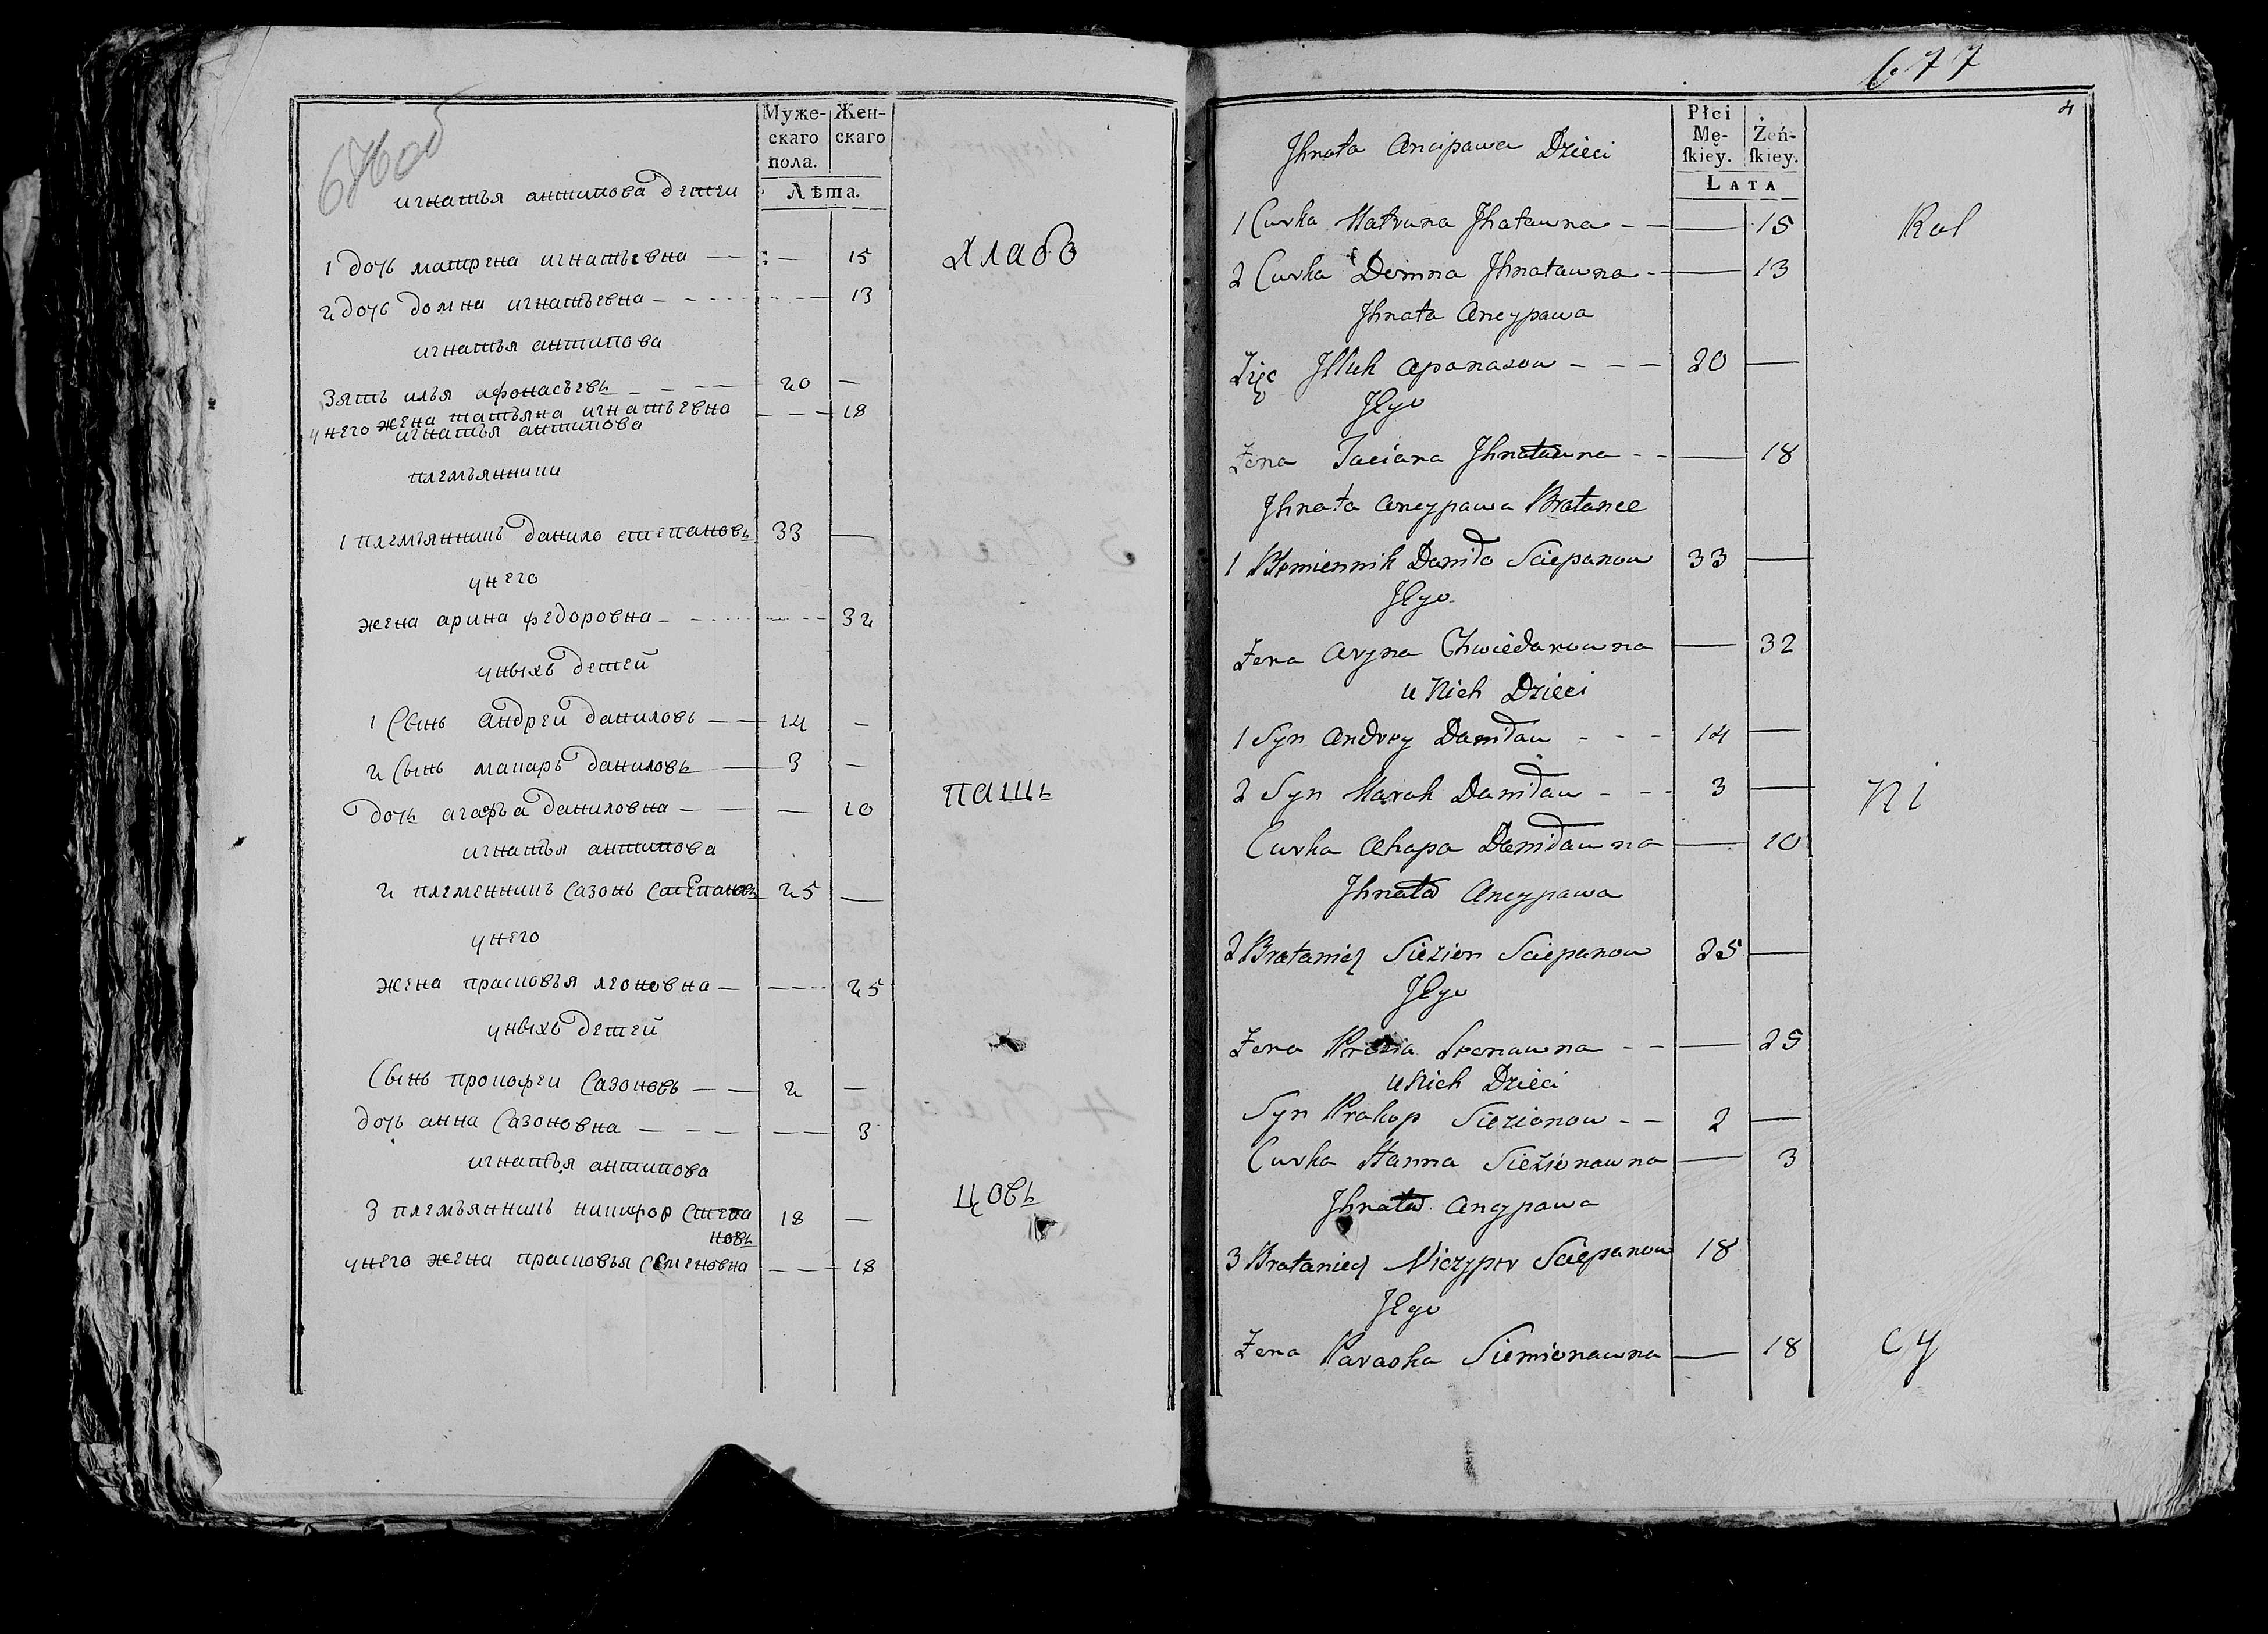 676об
Муже- Жен-
скаго скаго
пола.
Лѣта.
игнатья антипова детеи
1 дочь матрена игнатьевна — : — 15 хлабо
2 дочь домна игнатьевна - - - 13
игнатья антипова
зять илья афонасьевъ - - - 20 —
у него жена татьяна игнатьевна - - - 18
игнатья антипова
племьянники
1 племьянникъ данило степановъ 33 —
у него
жена арина федоровна - - - 32
уныхъ детей
1 Сынъ андреи даниловъ — 14 —
2 Сынъ макаръ даниловъ — 3 —
дочь агафья даниловна — — 10 пашъ
игнатья антипова
2 племенникъ Сазонъ Степановъ 25 —
у него
жена прасковья леоновна — - - - 25
уныхъ детей
Сынъ прокофеи Сазоновъ — — 2 —
дочь анна Сазоновна — - - — 3
игнатья антипова
3 племьянникъ никифор Степа 18 — цовъ
новъ
у него жена прасковья Семеновна - — 18
677
4
Płci
Mę- Żeń-
ſkiey. ſkiey.
LATA
Jhnata Ancipawa Dzieci
1 Curka Matruna Jhatawna - — — 15 Rol
2 Curka Domna Jhnatawna - — 13
Jhnata Ancypawa
Zięc Jlluk Apanasou - - - 20 —
Jego
Żona Taciana Jhnatauna - - — 18
Jhnata Ancypawa Bratance
1 Plemiennik Daniło Sciepanou 33 —
Jego
Żona Aryna Chwiedarouna — 32
u Nich Dzieci
1 Syn Andrey Daniłau - - - 14 —
2 Syn Makar Daniłau - - - 3 — ni
Curka Ahapa Daniłauna — 10
Jhnata Ancypawa
2 Brataniec Siezion Sciepanou 25 —
Jego
Żona Prosia Leonauna - - — 25
u Nich Dzieci
Syn Prokop Siezionou - - 2 —
Curka Hanna Siezionauna — 3
Jhnata Ancypawa
3 Brataniec Niczypor Sciepanou 18
Jego
Żona Paraska Siemionauna — 18 cy